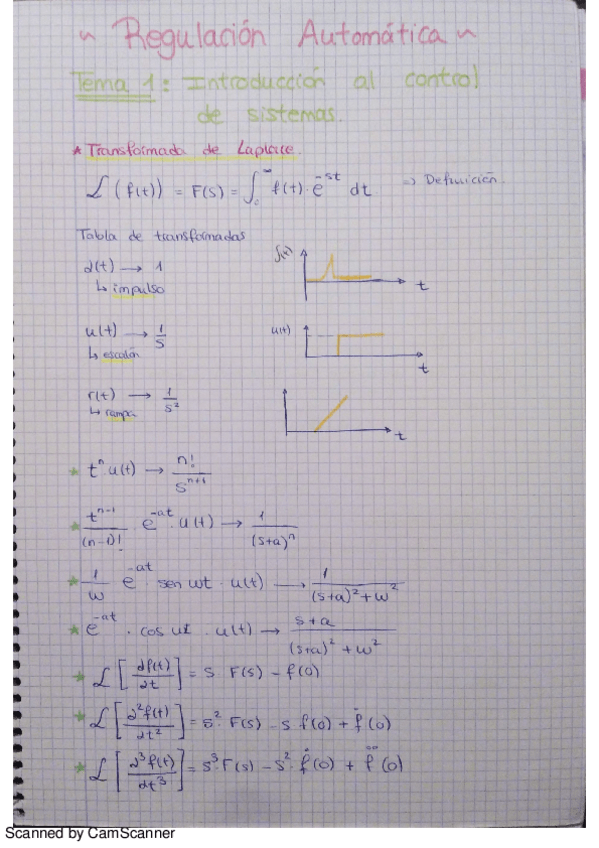 ~ Regulación Automática ~
Tema 1: Introducción al control
de sistemas.
* Transformada de Laplace.
ℒ (f(t)) = F(s) = ∫₀^∞ f(t) · e^{-st} dt => Definición.
Tabla de transformadas
δ(t) → 1
↳ impulso
f(t)
t
u(t) → 1/s
↳ escalón
u(t)
t
r(t) → 1/s²
↳ rampa
t
* tⁿ · u(t) → n!/s^{n+1}
* t^{n-1}/(n-1)! · e^{-at} · u(t) → 1/(s+a)ⁿ
* 1/w e^{-at} · sen wt · u(t) → 1/((s+a)² + w²)
* e^{-at} · cos wt · u(t) → (s+a)/((s+a)² + w²)
* ℒ [∂f(t)/∂t] = s · F(s) - f(0)
* ℒ [∂²f(t)/∂t²] = s² · F(s) - s · f(0) + ḟ(0)
* ℒ [∂³f(t)/∂t³] = s³ · F(s) - s² · ḟ(0) + f̈(0)
Scanned by CamScanner